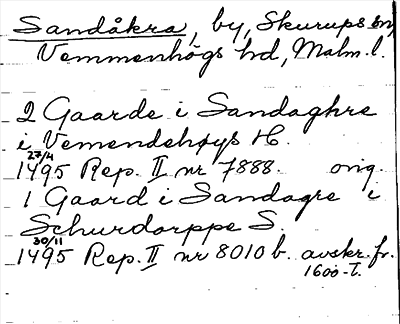 Sandåkra, by, Skurups sn,
Vemmenhögs hd, Malm. l.
2 Gaarde i Sandaghre
i Vemendehøys H.
27/4
1495 Rep. II nr 7888. orig.
1 Gaard i Sandagre i
Schurdorppe S.
30/11
1495 Rep. II nr 8010 b. avskr. fr.
1600-t.